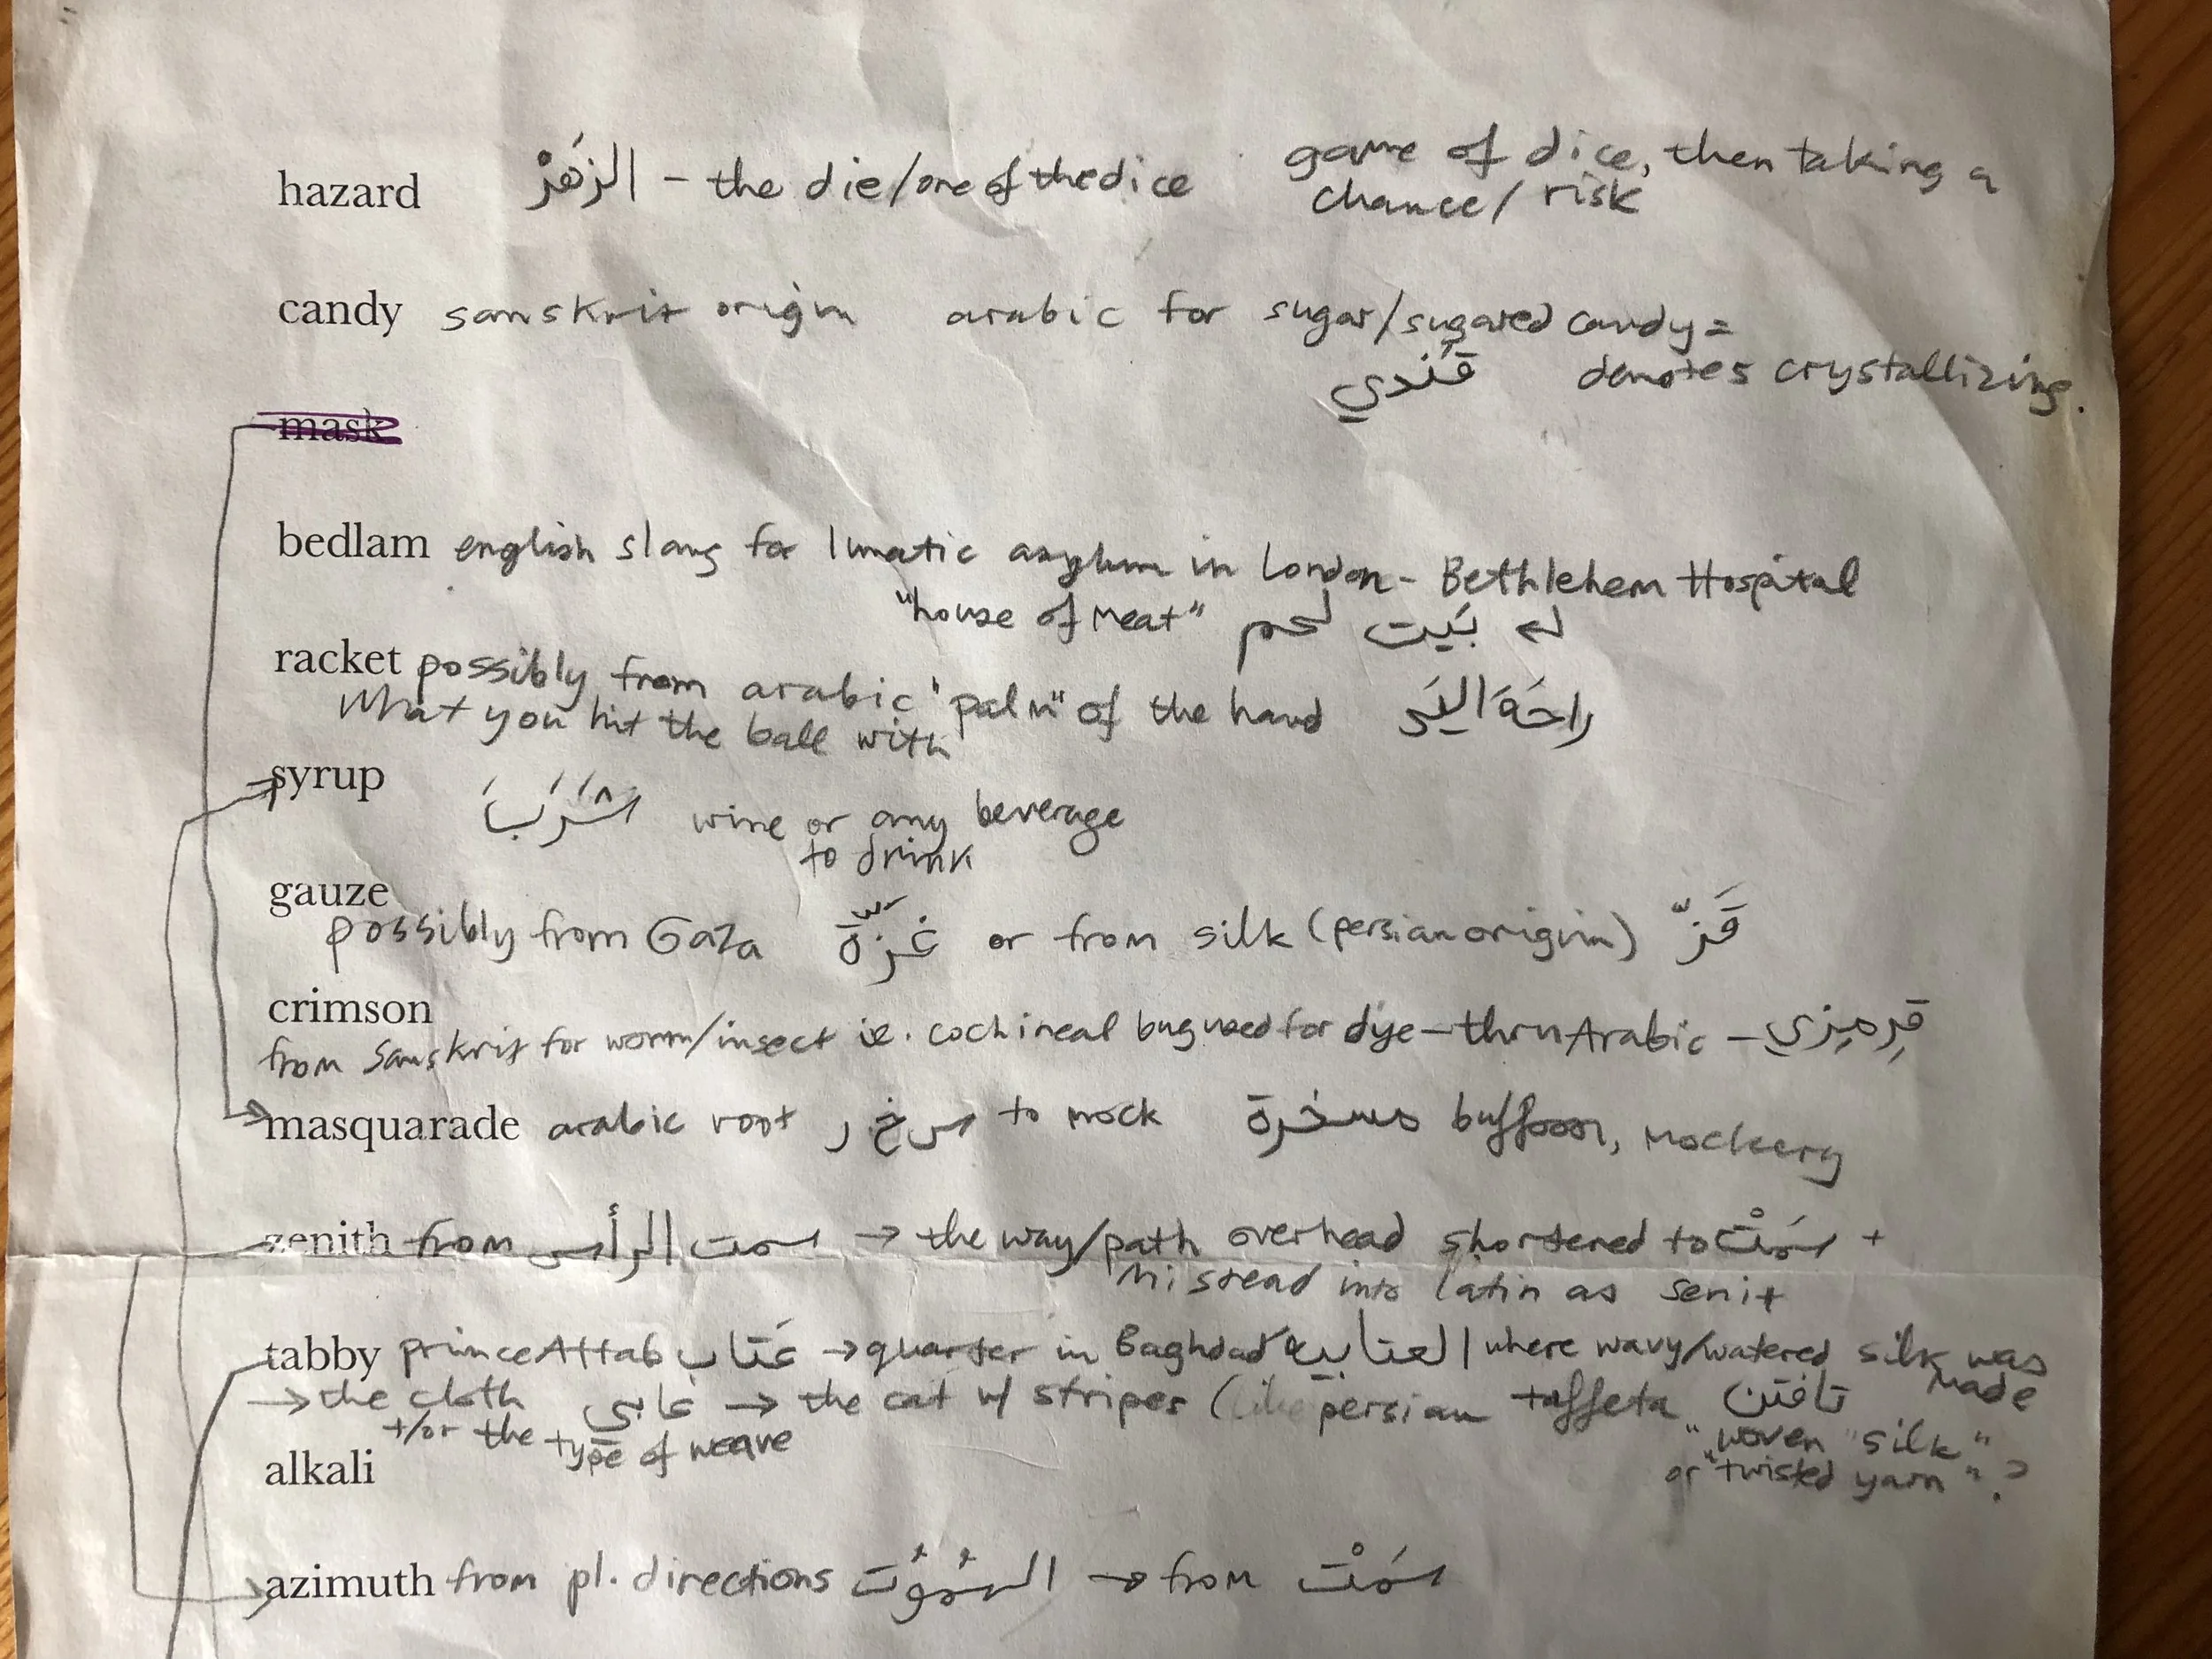 hazard الزَهْرْ - the die/one of the dice game of dice, then taking a
chance/risk
candy sanskrit origin arabic for sugar/sugared candy =
قَندي denotes crystallizing.
mask
bedlam english slang for lunatic asylum in London - Bethlehem Hospital
"house of meat" بَيت لحم
racket possibly from arabic "palm" of the hand راحَةَ اليَد
what you hit the ball with
syrup wine or any beverage
to drink
gauze
possibly from Gaza غَزّة or from silk (persian origin) قَزّ
crimson
from Sanskrit for worm/insect ie. cochineal bug used for dye - thru Arabic - قِرمِزي
masquarade arabic root س خ ر to mock مسخرة buffoon, mockery
zenith from سمت الرأس → the way/path overhead shortened to سَمْت +
misread into latin as senit
tabby prince Attab عَتاب → quarter in Baghdad العتابية where wavy/watered silk was
made
→ the cloth → the cat w/ stripes (like persian taffeta تافتن
+/or the type of weave "woven silk"
or "twisted yarn"?
alkali
azimuth from pl. directions السُمُوت → from سَمْت